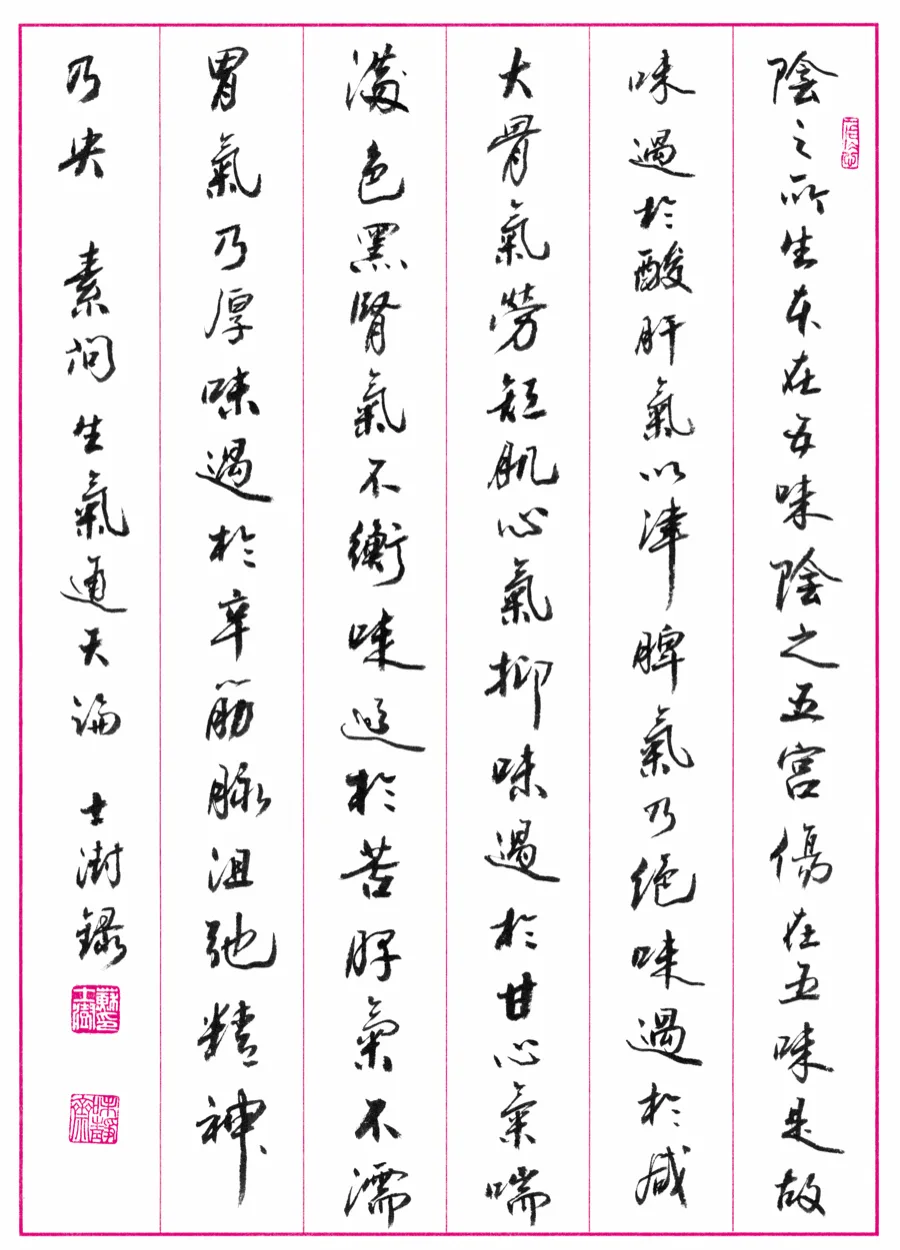 陰之所生本在五味陰之五宮傷在五味是故
味過於酸肝氣以津脾氣乃絕味過於咸
大骨氣勞短肌心氣抑味過於甘心氣喘
滿色黑腎氣不衡味過於苦脾氣不濡
胃氣乃厚味過於辛筋脉沮弛精神
乃央 素問生氣通天論 士澍錄
蘇士澍印